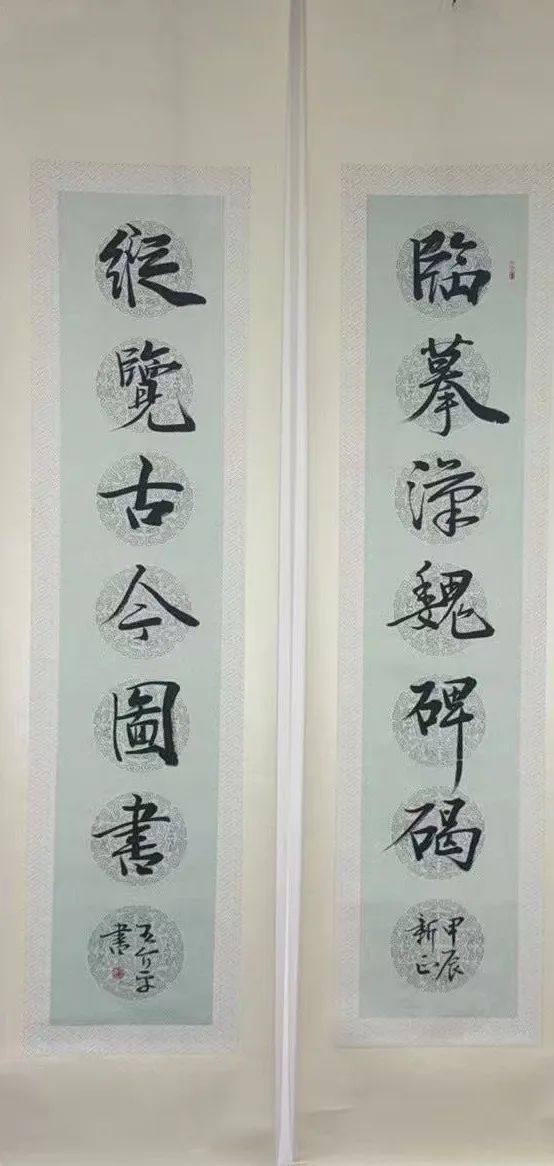 臨摹漢魏碑碣
甲辰
新正
縱覽古今圖書
書